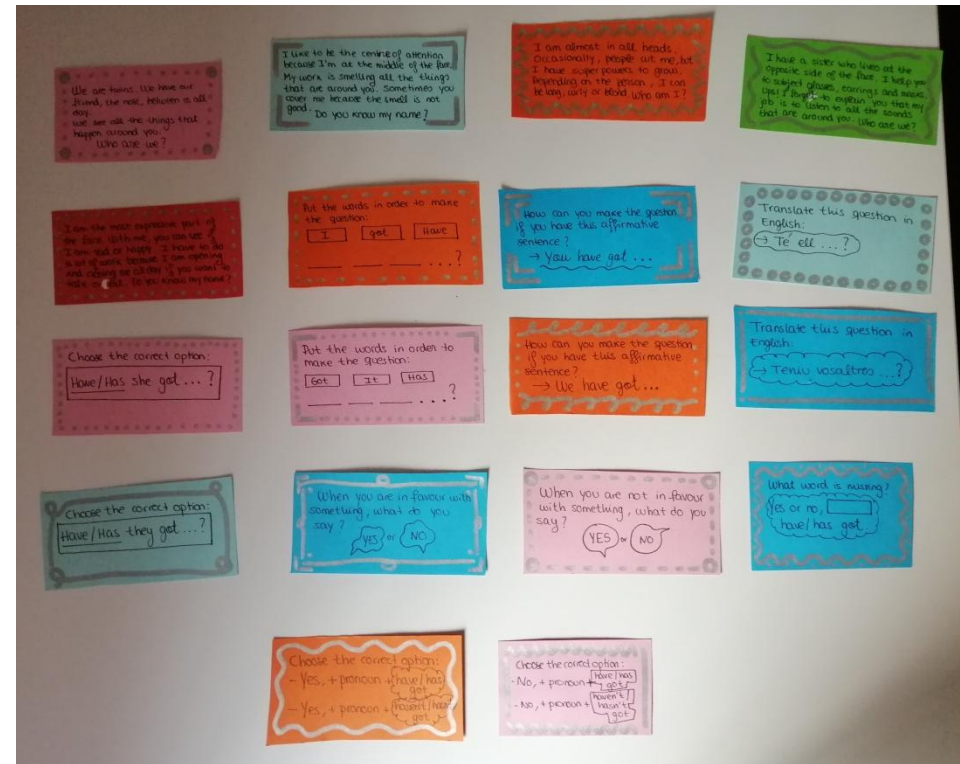 We are twins. We have our
friend, the nose, between us all
day.
We see all the things that
happen around you.
Who are we?
I like to be the centre of attention
because I'm at the middle of the face.
My work is smelling all the things
that are around you. Sometimes you
cover me because the smell is not
good.
Do you know my name?
I am almost in all heads.
Occasionally, people cut me, but
I have superpowers to grow.
Depending on the person, I can
be long, curly or blond. Who am I?
I have a sister who lives at the
opposite side of the face. I help you
to subject glasses, earrings and masks.
Ups! I forgot to explain you that my
job is to listen to all the sounds
that are around you. Who are we?
I am the most expressive part of
the face. With me, you can see if
I am sad or happy. I have to do
a lot of work because I am opening
and closing me all day if you want to
talk or eat. Do you know my name?
Put the words in order to make
the question:
I got Have
___ ___ ___ ...?
How can you make the question
if you have this affirmative
sentence?
→ You have got ...
Translate this question in
English:
→ Té ell ...?
Choose the correct option:
Have/Has she got ...?
Put the words in order to
make the question:
Got It Has
___ ___ ___ ...?
How can you make the question
if you have this affirmative
sentence?
→ We have got...
Translate this question in
English:
→ Teniu vosaltres ...?
Choose the correct option:
Have/Has they got ...?
When you are in favour with
something, what do you
say?
YES or NO
When you are not in favour
with something, what do you
say?
YES or NO
What word is missing?
Yes or no,
have/has got
Choose the correct option:
- Yes, + pronoun + have/has
got
- Yes, + pronoun + haven't/hasn't
got
Choose the correct option:
- No, + pronoun + have/has
got
- No, + pronoun + haven't/
hasn't
got